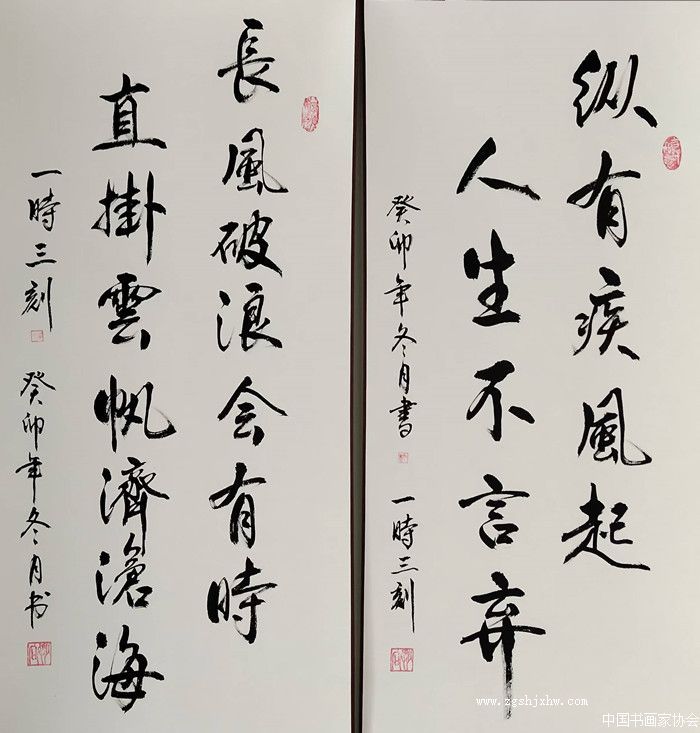 纵有疾風起
人生不言弃
癸卯年冬月書
一時三刻
長風破浪会有時
直掛雲帆濟滄海
一時三刻
癸卯年冬月书
www.zgshjxhw.com
中国书画家协会